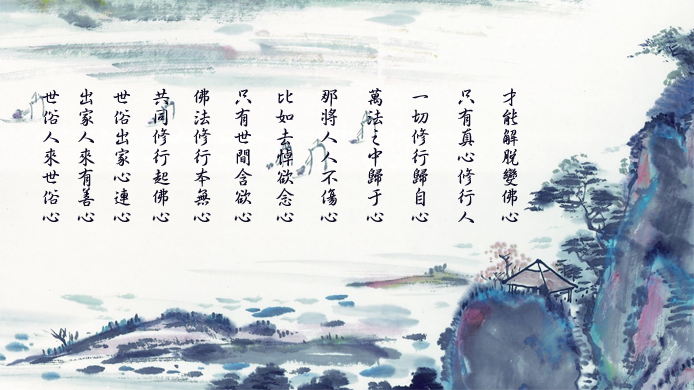 世俗人來世俗心
出家人來有善心
世俗出家心連心
共同修行起佛心
佛法修行本無心
只有世間含欲心
比如去悼欲念心
那將人人不傷心
萬法之中歸于心
一切修行歸自心
只有真心修行人
才能解脫變佛心